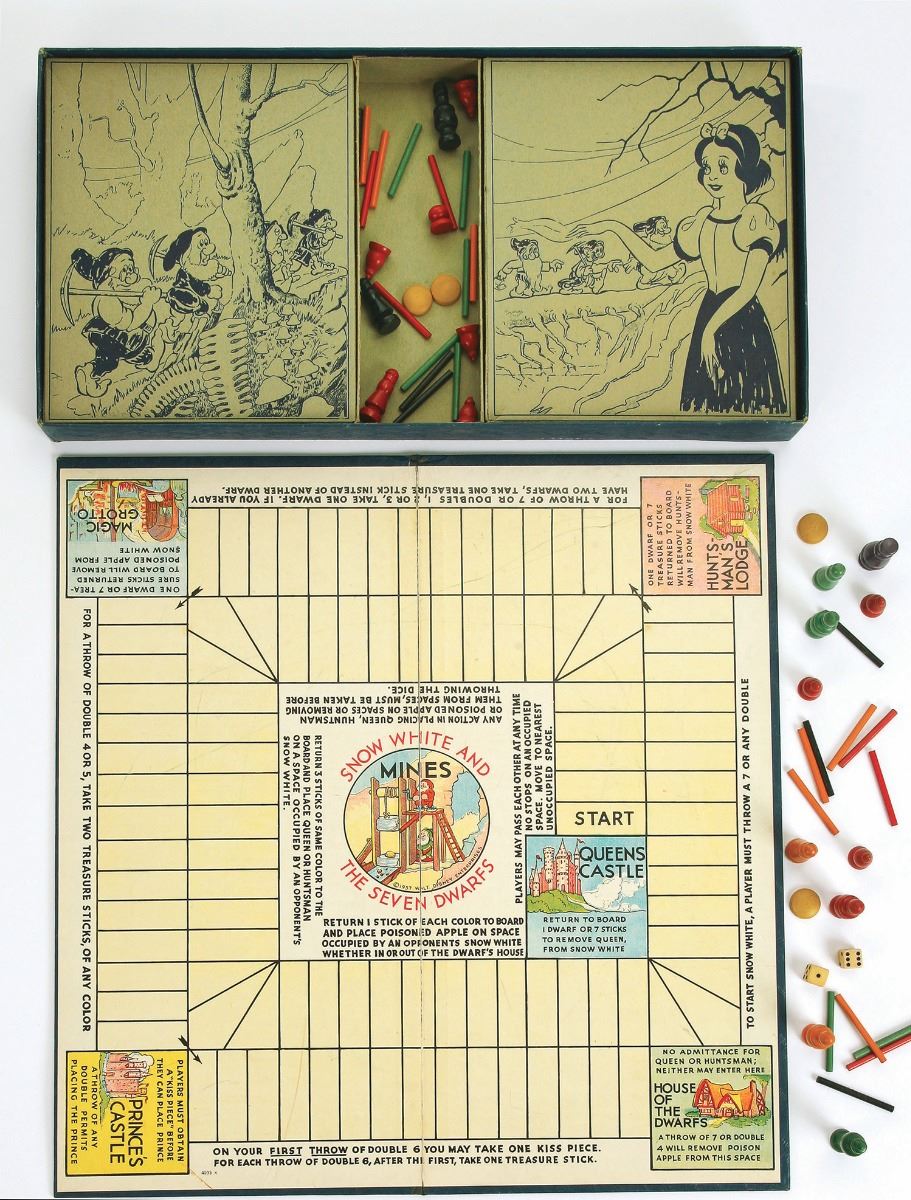 FOR A THROW OF 7 OR DOUBLES 1, 2 OR 3, TAKE ONE DWARF. IF YOU ALREADY
HAVE TWO DWARFS, TAKE ONE TREASURE STICK INSTEAD OF ANOTHER DWARF.
MAGIC
GROTTO
ONE DWARF OR 7 TREA-
SURE STICKS RETURNED
TO BOARD WILL REMOVE
POISONED APPLE FROM
SNOW WHITE
ONE DWARF OR 7
TREASURE STICKS
RETURNED TO BOARD
WILL REMOVE HUNTS-
MAN FROM SNOW WHITE
HUNTS-
MAN'S
LODGE
FOR A THROW OF DOUBLE 4 OR 5, TAKE TWO TREASURE STICKS, OF ANY COLOR
ANY ACTION IN PLACING QUEEN, HUNTSMAN
OR POISONED APPLE ON SPACES OR REMOVING
THEM FROM SPACES, MUST BE TAKEN BEFORE
THROWING THE DICE.
RETURN 3 STICKS OF SAME COLOR TO THE
BOARD AND PLACE QUEEN OR HUNTSMAN
ON A SPACE OCCUPIED BY AN OPPONENT'S
SNOW WHITE.
SNOW WHITE AND
MINES
©1937 WALT DISNEY ENTERPRISES
THE SEVEN DWARFS
PLAYERS MAY PASS EACH OTHER AT ANY TIME
NO STOPS ON AN OCCUPIED
SPACE. MOVE TO NEAREST
UNOCCUPIED SPACE.
RETURN 1 STICK OF EACH COLOR TO BOARD
AND PLACE POISONED APPLE ON SPACE
OCCUPIED BY AN OPPONENTS SNOW WHITE
WHETHER IN OR OUT OF THE DWARF'S HOUSE
START
QUEENS
CASTLE
RETURN TO BOARD
1 DWARF OR 7 STICKS
TO REMOVE QUEEN,
FROM SNOW WHITE
TO START SNOW WHITE, A PLAYER MUST THROW A 7 OR ANY DOUBLE
PLAYERS MUST OBTAIN
A "KISS PIECE" BEFORE
THEY CAN PLACE PRINCE
PRINCE'S
CASTLE
A THROW OF ANY
DOUBLE PERMITS
PLACING THE PRINCE
NO ADMITTANCE FOR
QUEEN OR HUNTSMAN;
NEITHER MAY ENTER HERE
HOUSE
OF
THE
DWARFS
A THROW OF 7 OR DOUBLE
4 WILL REMOVE POISON
APPLE FROM THIS SPACE
ON YOUR FIRST THROW OF DOUBLE 6 YOU MAY TAKE ONE KISS PIECE.
FOR EACH THROW OF DOUBLE 6, AFTER THE FIRST, TAKE ONE TREASURE STICK.